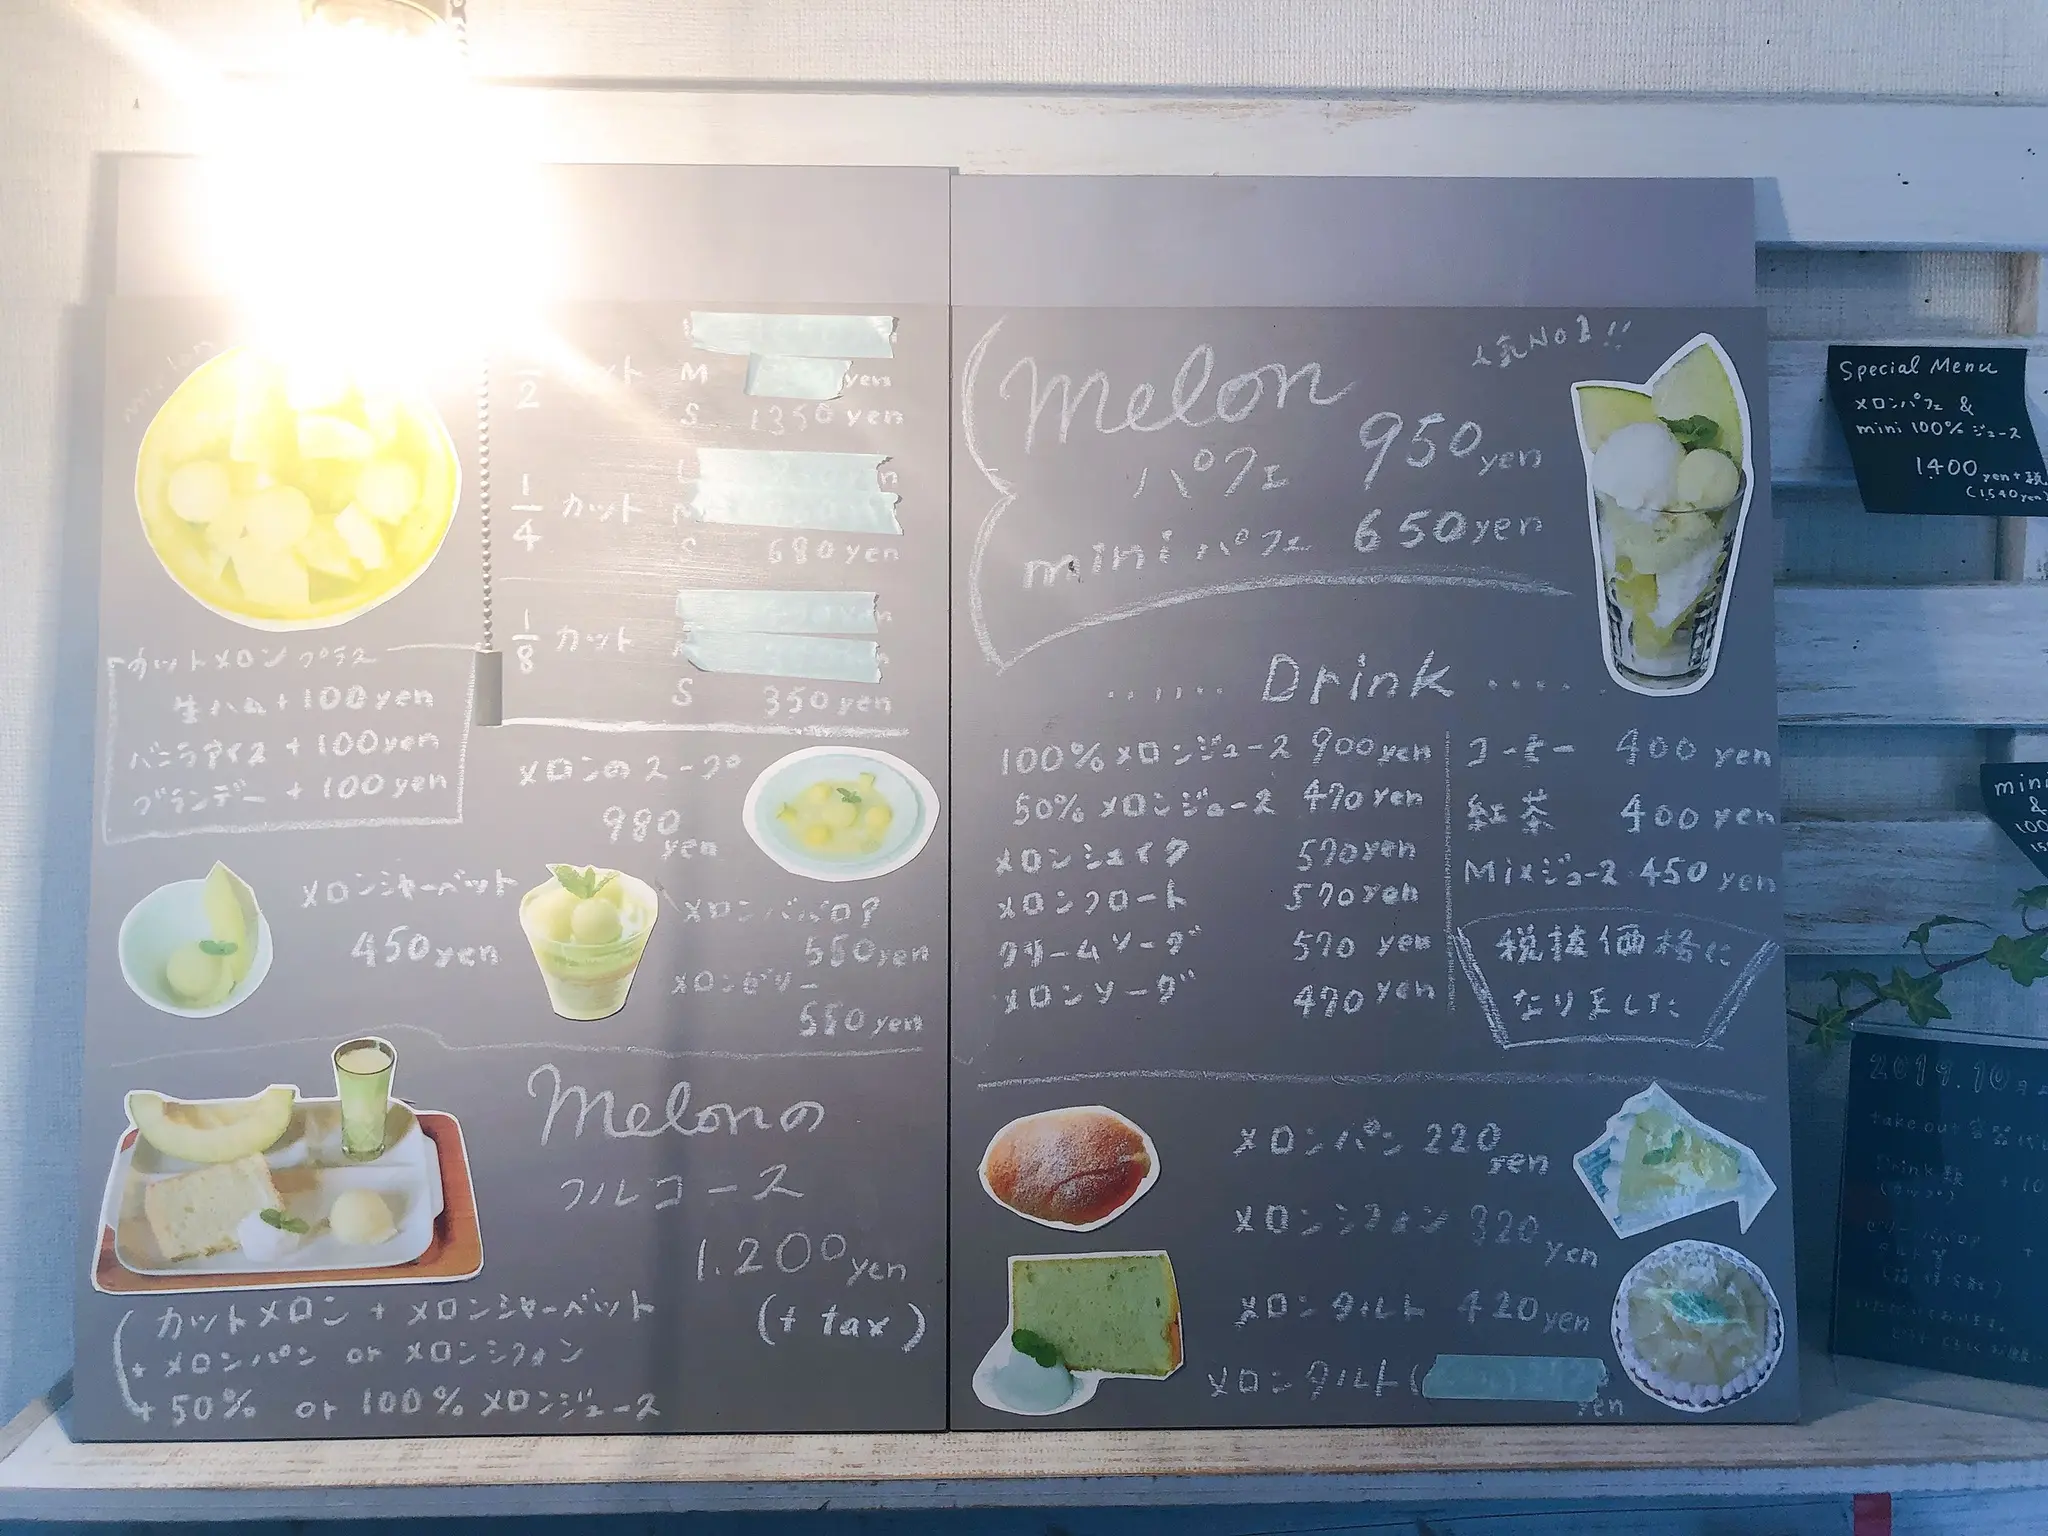 melon
1/2 カット
M yen
S 1350 yen
1/4 カット
L
M
S 680 yen
1/8 カット
S 350 yen
カットメロン プラス
生ハム + 100 yen
バニラアイス + 100 yen
ブランデー + 100 yen
メロンのスープ
980
yen
メロンシャーベット
450 yen
メロンババロア
550 yen
メロンゼリー
550 yen
Melonの
フルコース
1.200 yen
(+ tax)
(カットメロン + メロンシャーベット
+ メロンパン or メロンシフォン
+ 50% or 100% メロンジュース
人気No1!!
Melon
パフェ 950 yen
mini パフェ 650 yen
...... Drink .....
100% メロンジュース 900 yen
50% メロンジュース 470 yen
メロンシェイク 570 yen
メロンフロート 570 yen
クリームソーダ 570 yen
メロンソーダ 470 yen
コーヒー 400 yen
紅茶 400 yen
Mixジュース 450 yen
税抜価格に
なりました
メロンパン 220
yen
メロンシフォン 320
yen
メロンタルト 420 yen
メロンタルト(
yen
Special Menu
メロンパフェ &
mini 100% ジュース
1400 yen+税
(1540 yen)
mini
&
100
15
2019.10月
take out
Drink類
(カップ) + 10
ゼリー・ババロア
タルト等 +